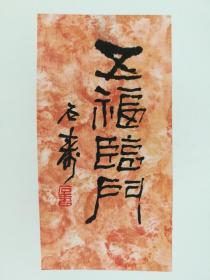 五福臨門
石壽